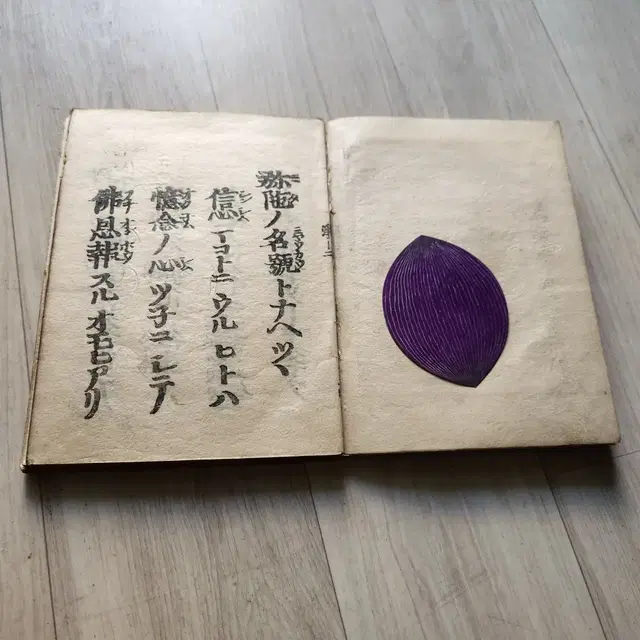 弥陀ノ名號トナヘツヽ
信心マコトニウルヒトハ
憶念ノ心ツ子ニシテ
佛恩報スルオモヒアリ